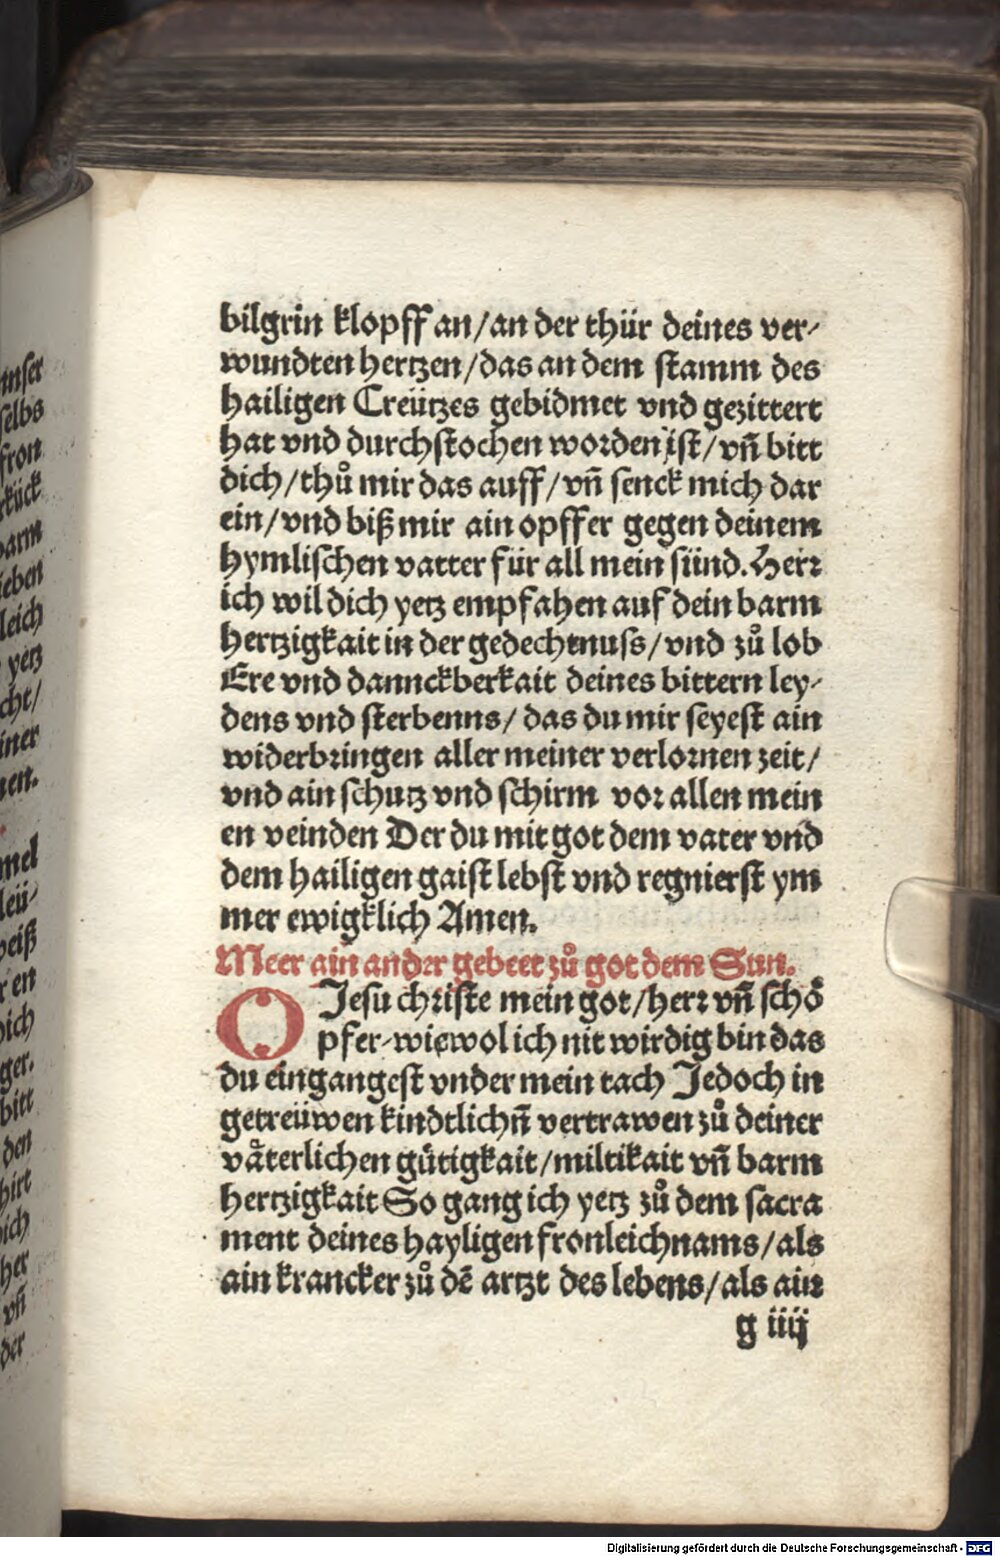 bilgrin klopff an/an der thür deines ver-
wundten hertzen/das an dem stamm des
hailigen Creützes gebidmet vnd gezittert
hat vnd durchstochen worden ist/vñ bitt
dich/thů mir das auff/vñ senck mich dar
ein/vnd biß mir ain opffer gegen deinem
hymlischen vatter für all mein sünd. Herr
ich wil dich yetz empfahen auf dein barm
hertzigkait in der gedechtnuss/vnd zů lob
Ere vnd dannckberkait deines bittern ley-
dens vnd sterbenns/das du mir seyest ain
widerbringen aller meiner verlornen zeit/
vnd ain schutz vnd schirm vor allen mein
en veinden Der du mit got dem vater vnd
dem hailigen gaist lebst vnd regnierst ym
mer ewigklich Amen.
Meer ain ander gebeet zů got dem Sun.
O Jesu christe mein got/herr vñ schö
pfer-wiewol ich nit wirdig bin das
du eingangest vnder mein tach Jedoch in
getreüwen kindtlichñ vertrawen zů deiner
väterlichen gütigkait/miltikait vñ barm
hertzigkait So gang ich yetz zů dem sacra
ment deines hayligen fronleichnams/als
ain krancker zů dē artzt des lebens/als ain
g iiij
unser
selbs
fron
barm
ieben
leich
yetz
cht/
iner
nen.
mel
leü-
weiß
r en
ich
ger.
bitt
den
hirt
ich
her
vñ
der
Digitalisierung gefördert durch die Deutsche Forschungsgemeinschaft - DFG